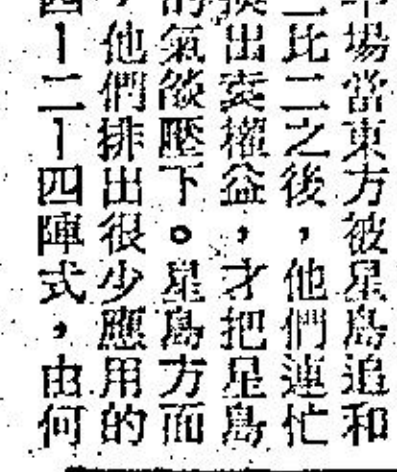 市場當東方被星島追和
二比二之後，他們連忙
換出袁權益，才把星島
的氣燄壓下。星島方面
，他們排出很少應用的
四１二１四陣式，由何